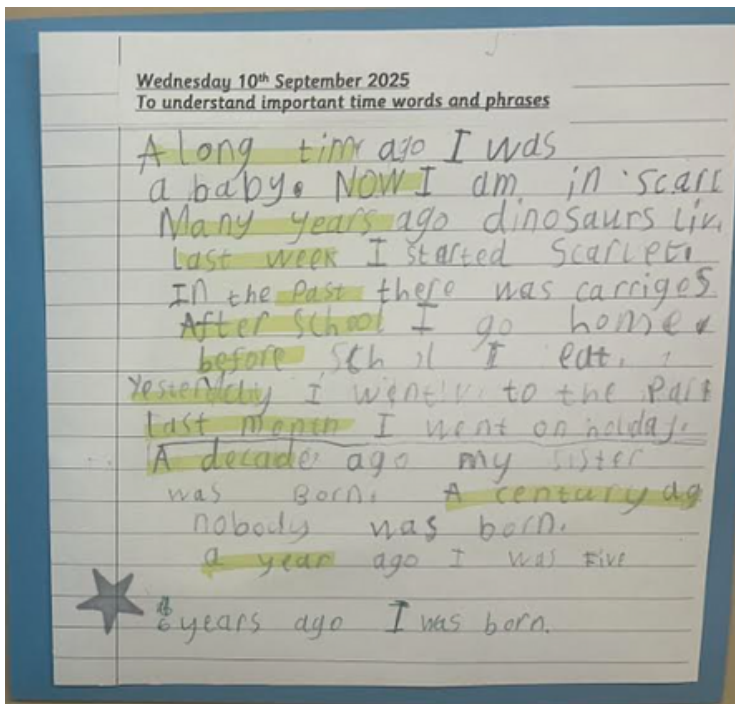 Wednesday 10th September 2025
To understand important time words and phrases
A long time ago I was
a baby. NOW I am in scarl
Many years ago dinosaurs liv
Last week I started Scarlet
In the Past there was carriges
After school I go home
before I eat.
Yesterday I went to the Park
Last month I went on holiday.
A decade ago my sister
was Born. A century ag
nobody was born.
a year ago I was Five
6 years ago I was born.